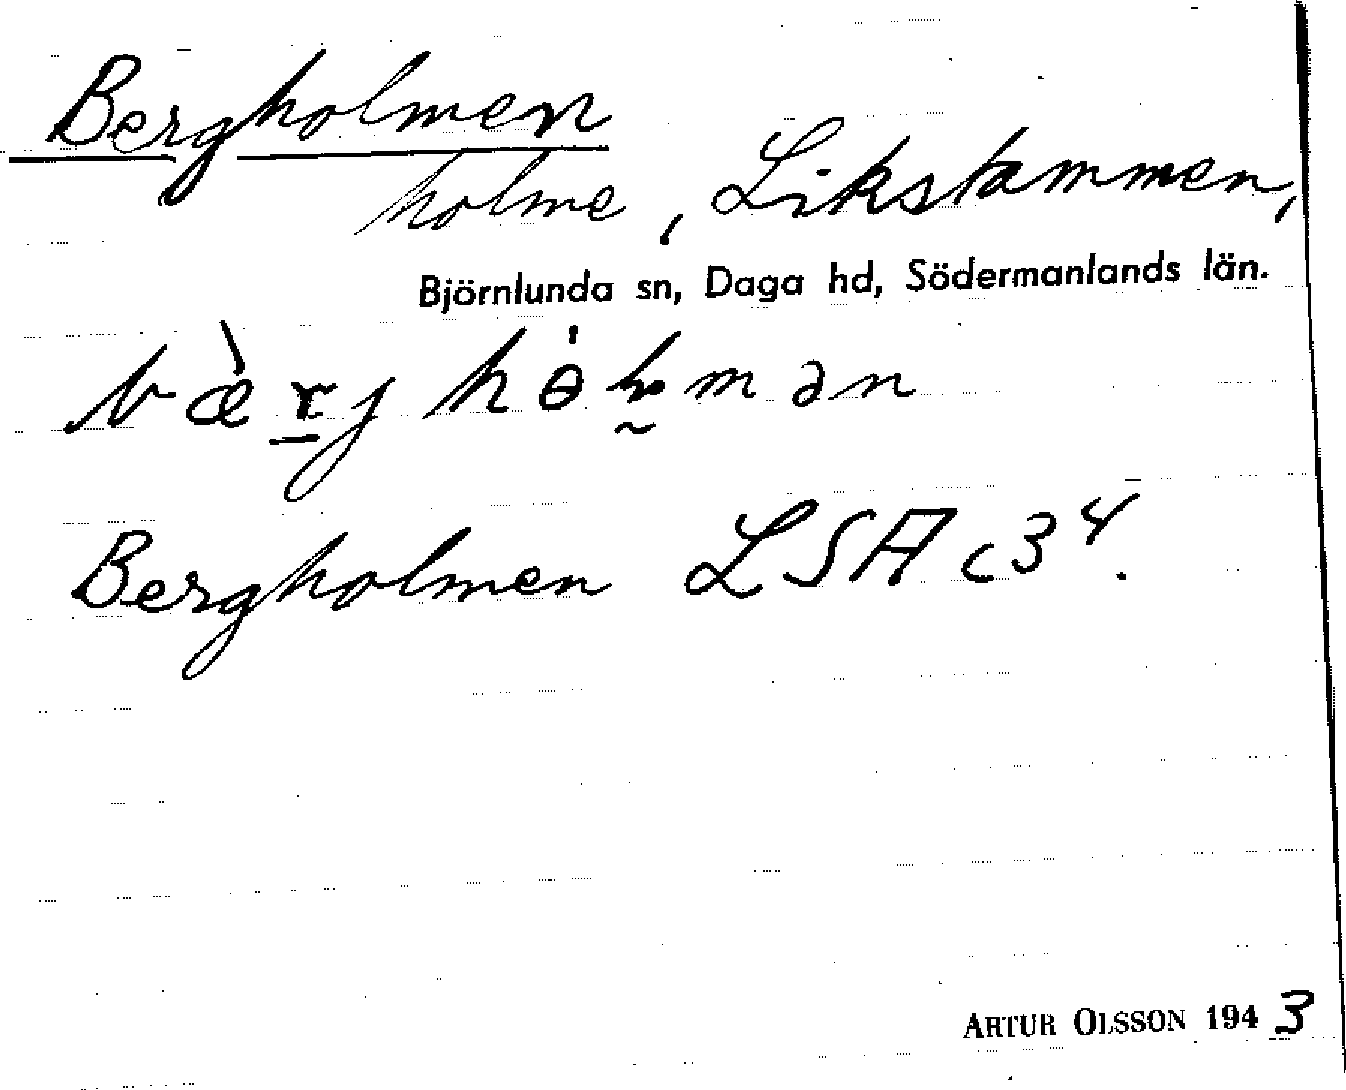 Bergholmen
holme, Likstammen,
Björnlunda sn, Daga hd, Södermanlands län.
Bergholmen LSA c34.
ARTUR OLSSON 1943